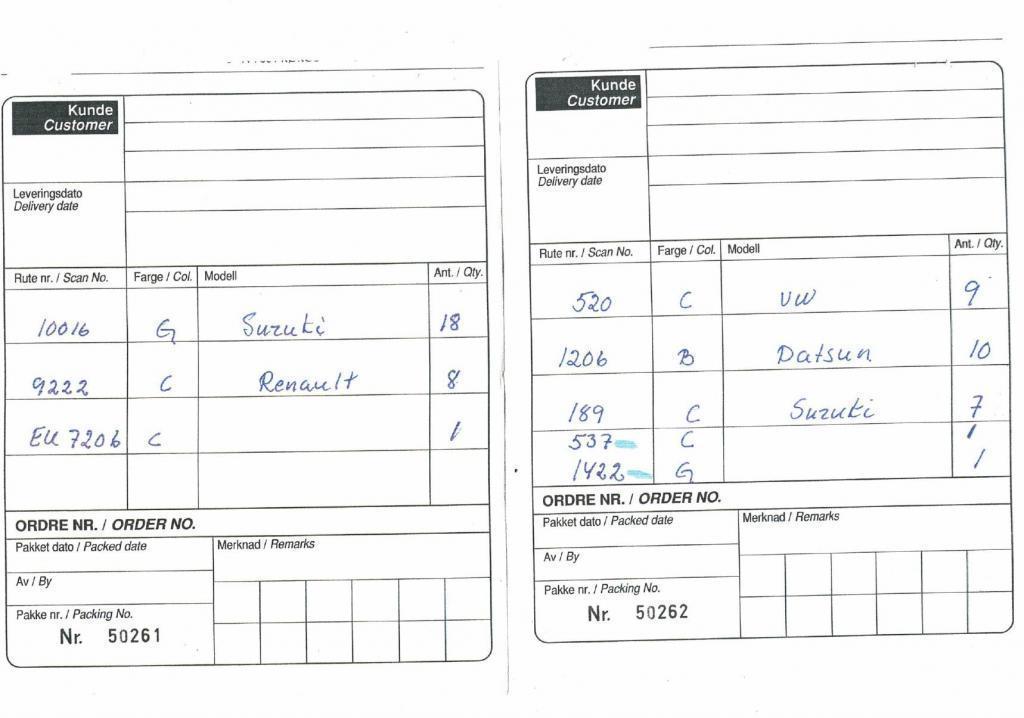 Kunde
Customer
Leveringsdato
Delivery date
Rute nr. / Scan No. Farge / Col. Modell Ant. / Qty.
10016 G Suzuki 18
9222 C Renault 8
EU 7206 C 1
ORDRE NR. / ORDER NO.
Pakket dato / Packed date Merknad / Remarks
Av / By
Pakke nr. / Packing No.
Nr. 50261
Kunde
Customer
Leveringsdato
Delivery date
Rute nr. / Scan No. Farge / Col. Modell Ant. / Qty.
520 C VW 9
1206 B Datsun 10
189 C Suzuki 7
537 C 1
1422 G 1
ORDRE NR. / ORDER NO.
Pakket dato / Packed date Merknad / Remarks
Av / By
Pakke nr. / Packing No.
Nr. 50262